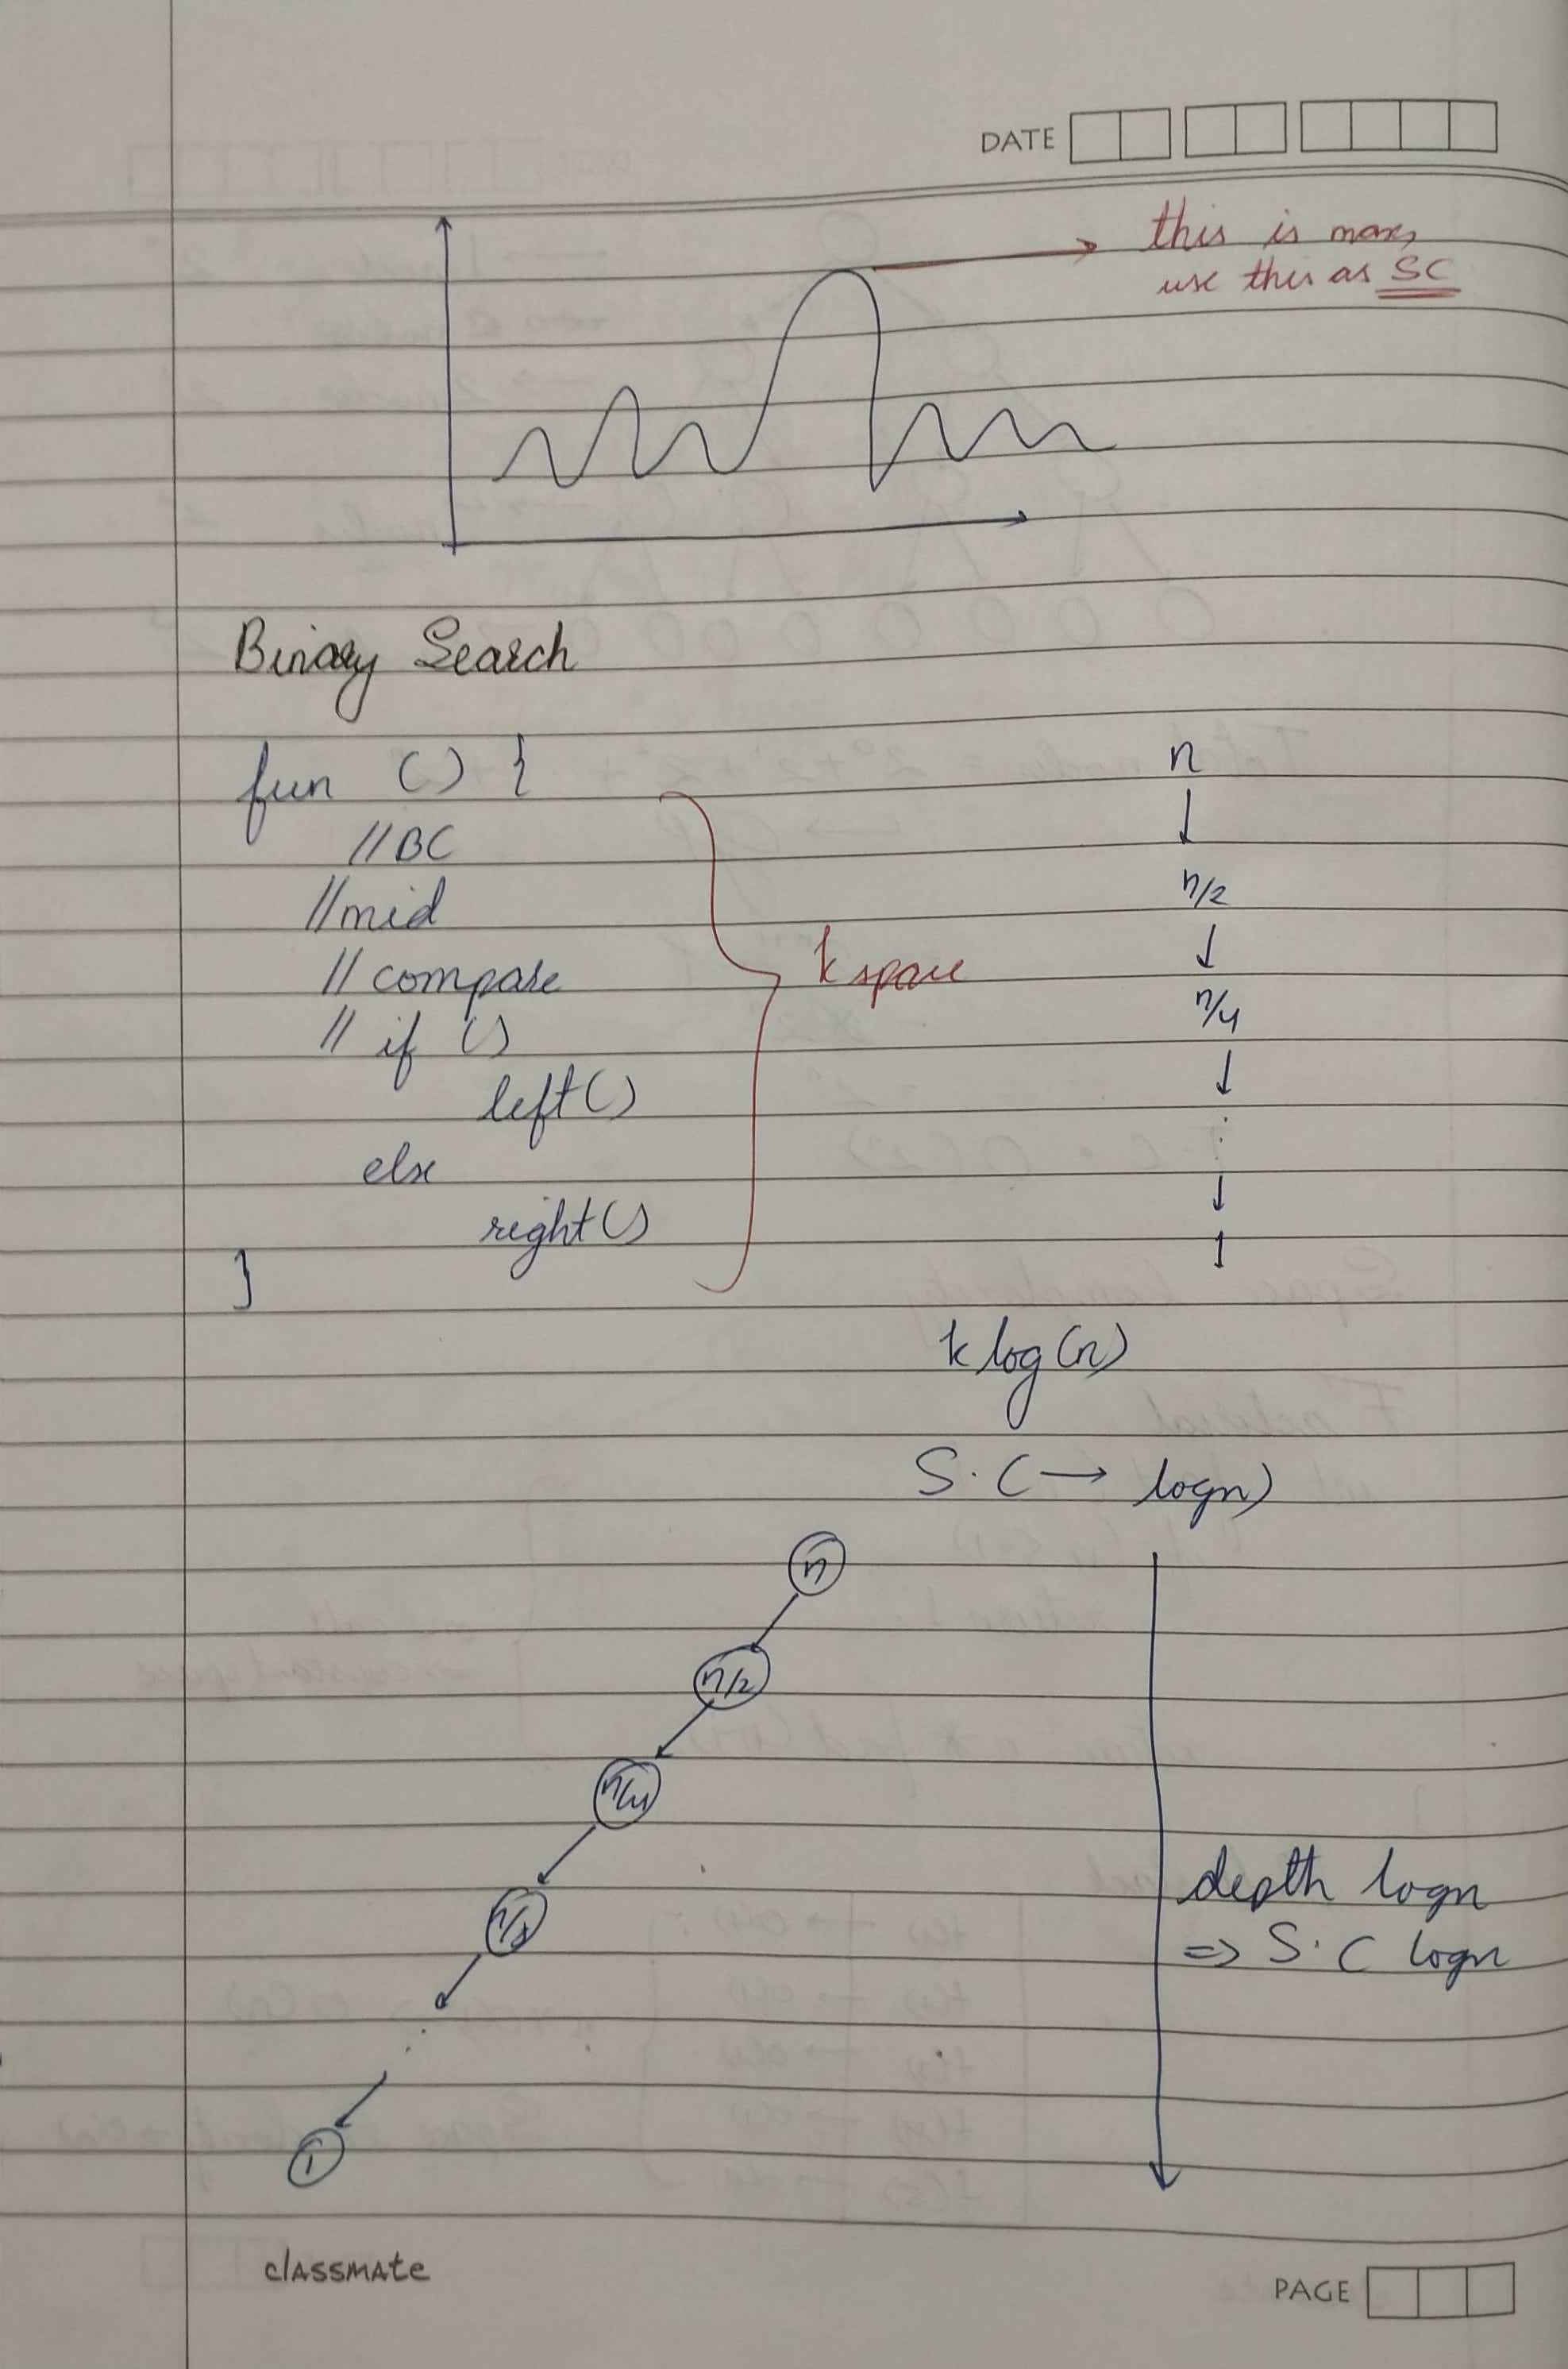 DATE
this is max,
use this as SC
Binary Search
fun () {
//BC
//mid
// compare
// if ()
left()
else
right()
}
k space
n
n/2
n/4
1
k log(n)
S.C → logn)
n
n/2
n/4
n/8
1
depth logn
=> S.C logn
classmate
PAGE